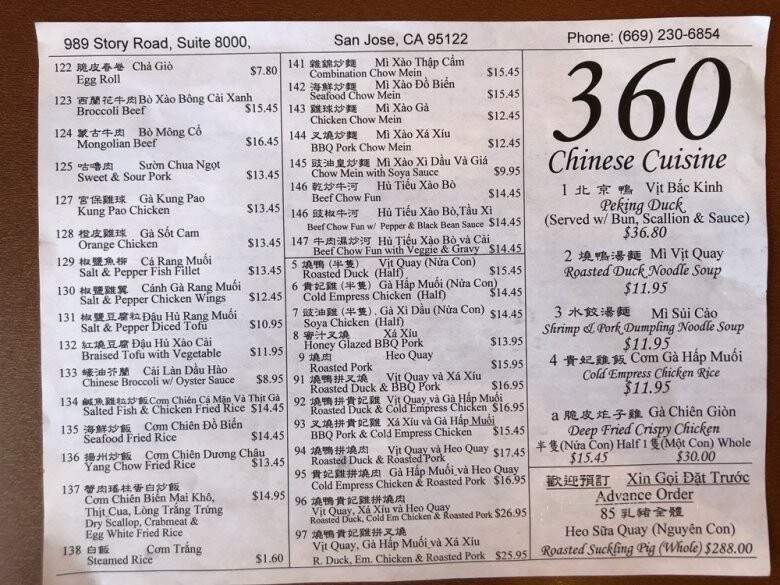 989 Story Road, Suite 8000, San Jose, CA 95122 Phone: (669) 230-6854
122 脆皮春卷 Chả Giò
Egg Roll $7.80
123 西蘭花牛肉 Bò Xào Bông Cải Xanh
Broccoli Beef $15.45
124 蒙古牛肉 Bò Mông Cổ
Mongolian Beef $16.45
125 咕嚕肉 Sườn Chua Ngọt
Sweet & Sour Pork $13.45
127 宮保雞球 Gà Kung Pao
Kung Pao Chicken $13.45
128 橙皮雞球 Gà Sốt Cam
Orange Chicken $13.45
129 椒鹽魚柳 Cá Rang Muối
Salt & Pepper Fish Fillet $13.45
130 椒鹽雞翼 Cánh Gà Rang Muối
Salt & Pepper Chicken Wings $12.45
131 椒鹽豆腐粒 Đậu Hủ Rang Muối
Salt & Pepper Diced Tofu $10.95
132 紅燒豆腐 Đậu Hủ Xào Cải
Braised Tofu with Vegetable $11.95
133 蠔油芥蘭 Cải Làn Dầu Hào
Chinese Broccoli w/ Oyster Sauce $8.95
134 鹹魚雞粒炒飯 Cơm Chiên Cá Mặn Và Thịt Gà
Salted Fish & Chicken Fried Rice $14.45
135 海鮮炒飯 Cơm Chiên Đồ Biển
Seafood Fried Rice $14.45
136 揚州炒飯 Cơm Chiên Dương Châu
Yang Chow Fried Rice $13.45
137 蟹肉瑤柱蛋白炒飯
Cơm Chiên Biển Mai Khô, $14.95
Thịt Cua, Lòng Trắng Trứng
Dry Scallop, Crabmeat &
Egg White Fried Rice
138 白飯 Cơm Trắng
Steamed Rice $1.60
141 雜錦炒麵 Mì Xào Thập Cẩm
Combination Chow Mein $15.45
142 海鮮炒麵 Mì Xào Đồ Biển
Seafood Chow Mein $15.45
143 雞球炒麵 Mì Xào Gà
Chicken Chow Mein $12.45
144 叉燒炒麵 Mì Xào Xá Xíu
BBQ Pork Chow Mein $12.45
145 豉油皇炒麵 Mì Xào Xì Dầu Và Giá
Chow Mein with Soya Sauce $9.95
146 乾炒牛河 Hủ Tiếu Xào Bò
Beef Chow Fun $14.45
146 豉椒牛河 Hủ Tiếu Xào Bò,Tầu Xì
Beef Chow Fun w/ Pepper & Black Bean Sauce $14.45
147 牛肉濕炒河 Hủ Tiếu Xào Bò và Cải
Beef Chow Fun with Veggie & Gravy $14.45
5 燒鴨 (半隻) Vịt Quay (Nửa Con)
Roasted Duck (Half) $15.45
6 貴妃雞 (半隻) Gà Hấp Muối (Nửa Con)
Cold Empress Chicken (Half) $14.45
7 豉油雞 (半隻). Gà Xì Dầu (Nửa Con)
Soya Chicken (Half) $14.45
8 蜜汁叉燒 Xá Xíu
Honey Glazed BBQ Pork $13.95
9 燒肉 Heo Quay
Roasted Pork $15.95
91 燒鴨拼叉燒 Vịt Quay và Xá Xíu
Roasted Duck & BBQ Pork $16.95
92 燒鴨拼貴妃雞 Vịt Quay và Gà Hấp Muối
Roasted Duck & Cold Empress Chicken $16.95
93 叉燒拼貴妃雞 Xá Xíu và Gà Hấp Muối
BBQ Pork & Cold Empress Chicken $15.45
94 燒鴨拼燒肉 Vịt Quay và Heo Quay
Roasted Duck & Roasted Pork $17.45
95 貴妃雞拼燒肉 Gà Hấp Muối và Heo Quay
Cold Empress Chicken & Roasted Pork $16.95
96 燒鴨貴妃雞拼燒肉
Vịt Quay, Xá Xíu và Heo Quay
Roasted Duck, Cold Em Chicken & Roasted Pork $26.95
97 燒鴨貴妃雞拼叉燒
Vịt Quay, Gà Hấp Muối và Xá Xíu
R. Duck, Em. Chicken & Roasted Pork $25.95
360
Chinese Cuisine
1 北京鴨 Vịt Bắc Kinh
Peking Duck
(Served w/ Bun, Scallion & Sauce)
$36.80
2 燒鴨湯麵 Mì Vịt Quay
Roasted Duck Noodle Soup
$11.95
3 水餃湯麵 Mì Sủi Cảo
Shrimp & Pork Dumpling Noodle Soup
$11.95
4 貴妃雞飯 Cơm Gà Hấp Muối
Cold Empress Chicken Rice
$11.95
a 脆皮炸子雞 Gà Chiên Giòn
Deep Fried Crispy Chicken
半隻(Nửa Con) Half 1隻(Một Con) Whole
$15.45 $30.00
歡迎預訂 Xin Gọi Đặt Trước
Advance Order
85 乳豬全體
Heo Sữa Quay (Nguyên Con)
Roasted Suckling Pig (Whole) $288.00